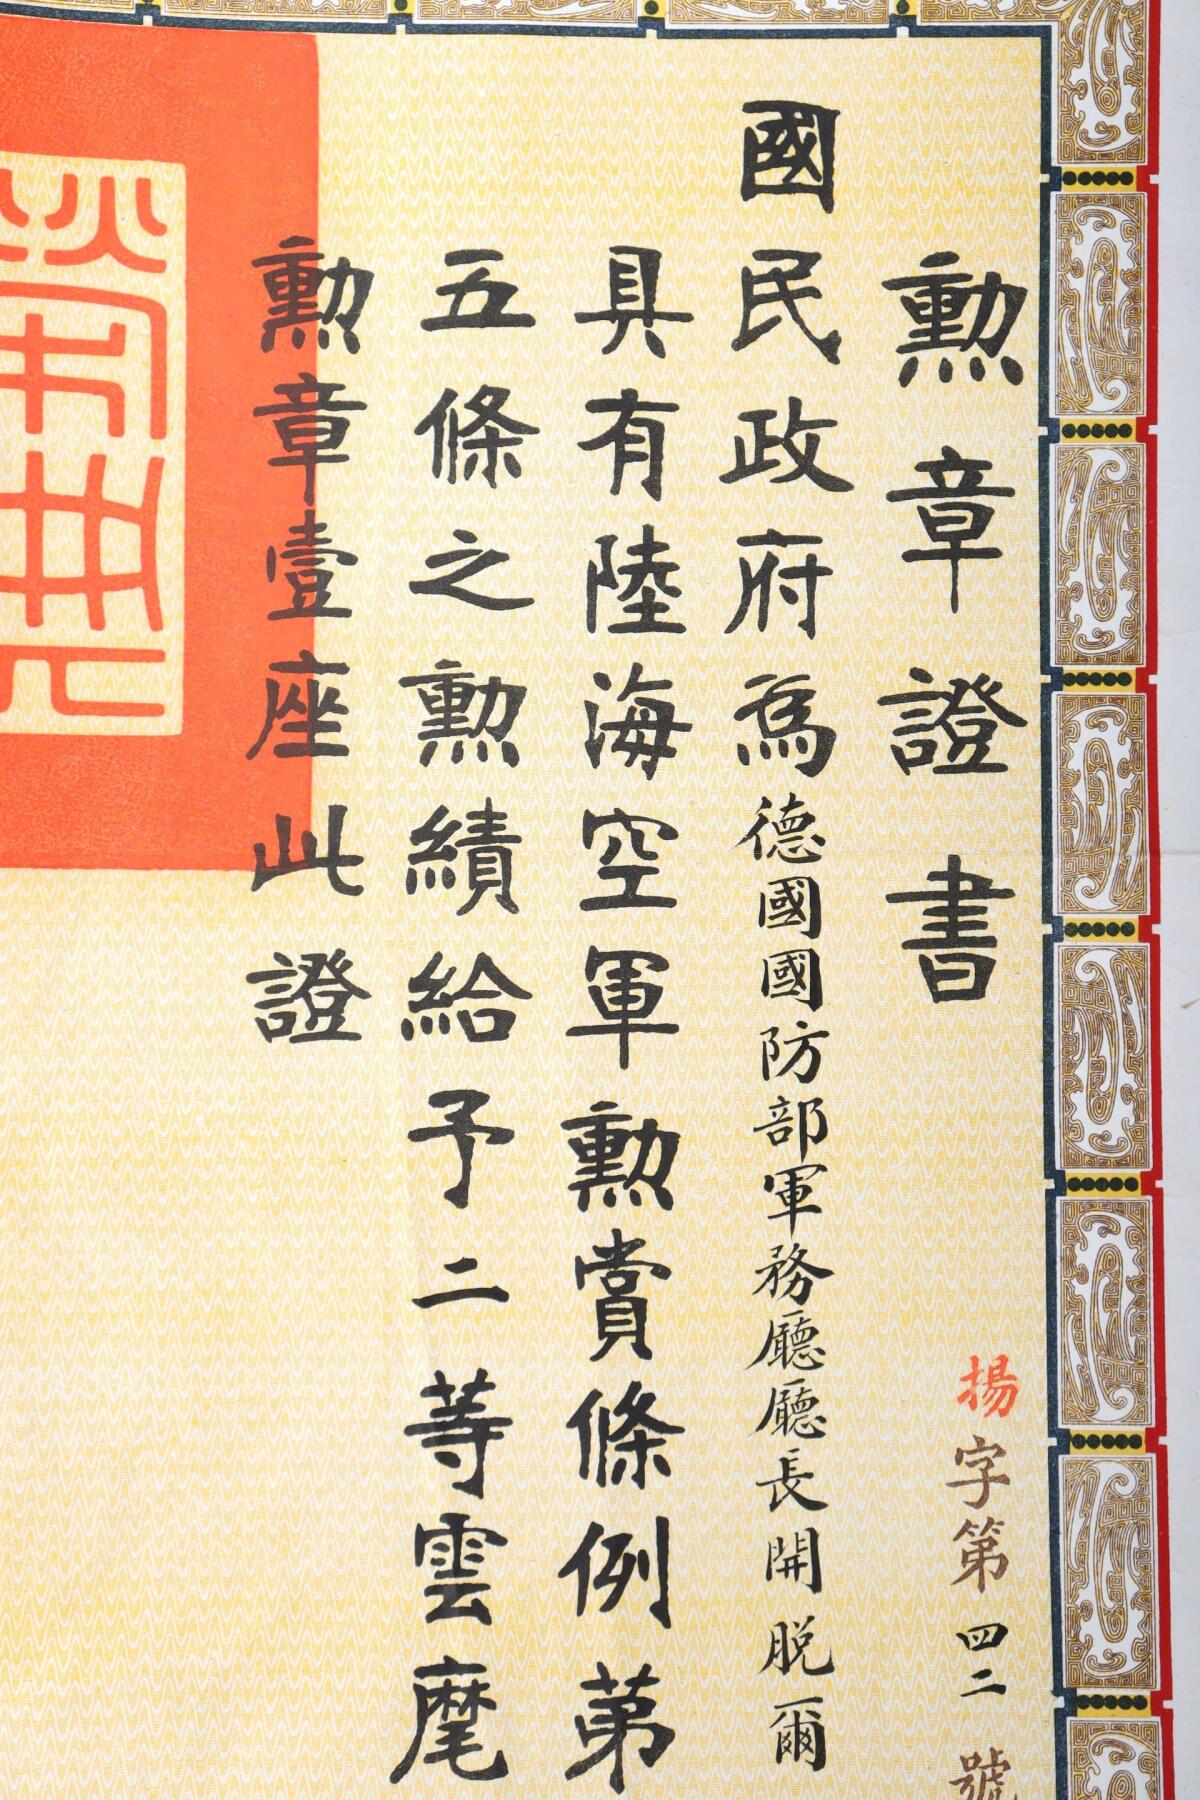 勲章證書
揚字第四二號
國民政府為德國國防部軍務廳廳長開脱爾
具有陸海空軍勲賞條例第
五條之勲績給予二等雲麾
勲章壹座此證
榮典